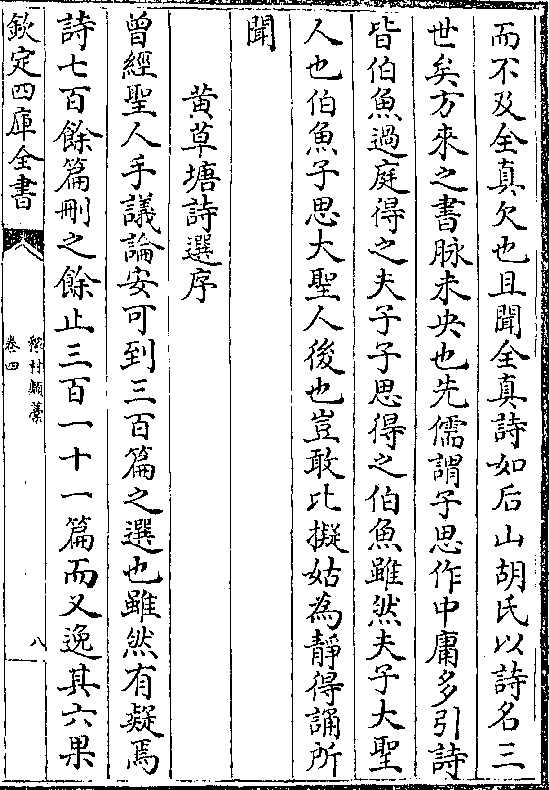 而不及全真欠也且聞全真詩如后山胡氏以詩名三
世矣方來之書脉未央也先儒謂子思作中庸多引詩
皆伯魚過庭得之夫子子思得之伯魚雖然夫子大聖
人也伯魚子思大聖人後也豈敢比擬姑為靜得誦所
聞
黄草塘詩選序
曾經聖人手議論安可到三百篇之選也雖然有疑焉
詩七百餘篇刪之餘止三百一十一篇而又逸其六果
欽定四庫全書
稼村類藁
卷四
八